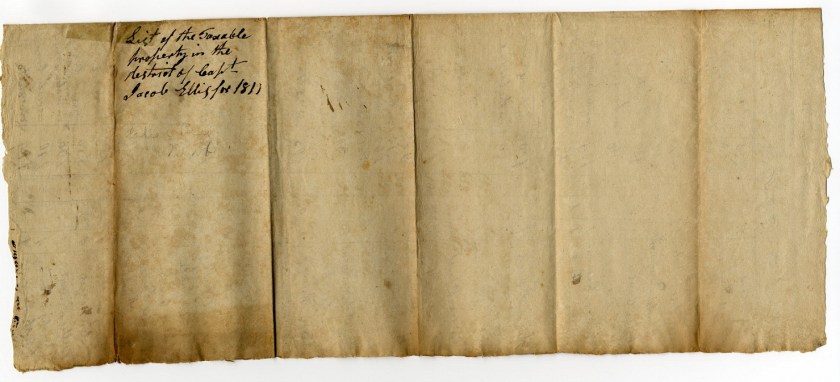 List of the Taxable
property in the
district of Capt
Jacob Ellis for 1811